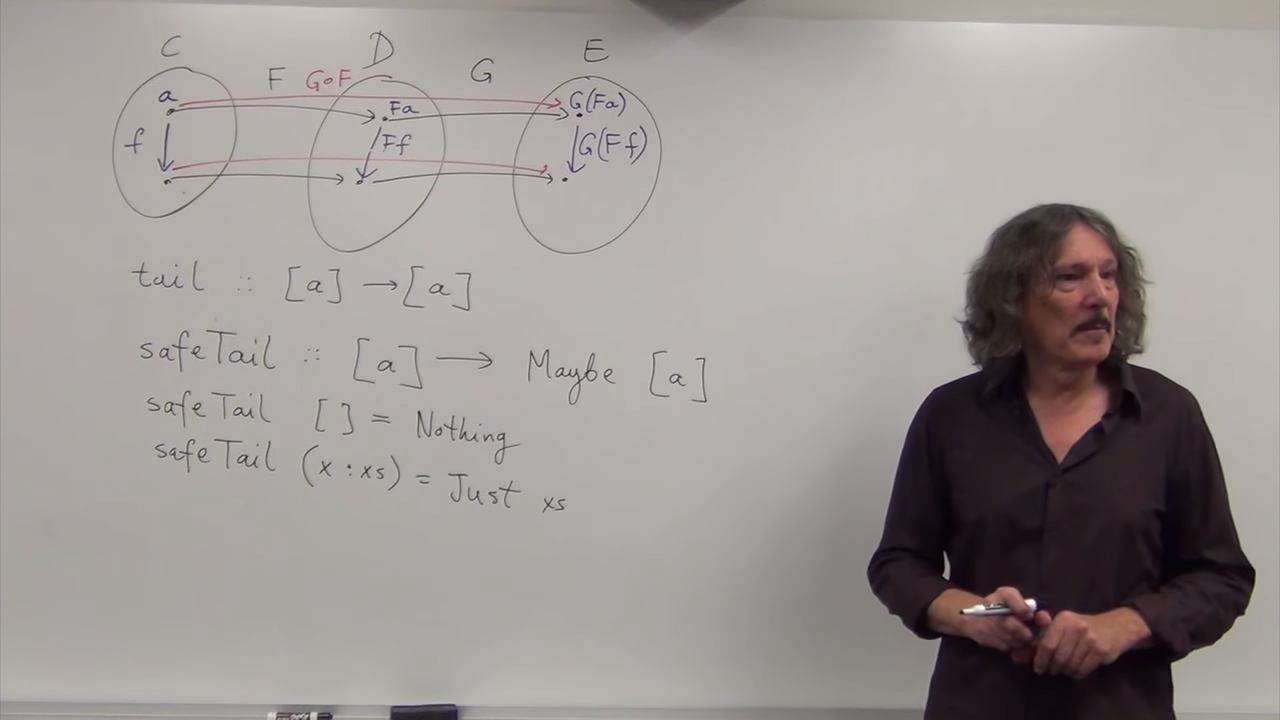 C D E
F G∘F G
a Fa G(Fa)
f Ff G(Ff)
tail :: [a] → [a]
safeTail :: [a] → Maybe [a]
safeTail [] = Nothing
safeTail (x:xs) = Just xs